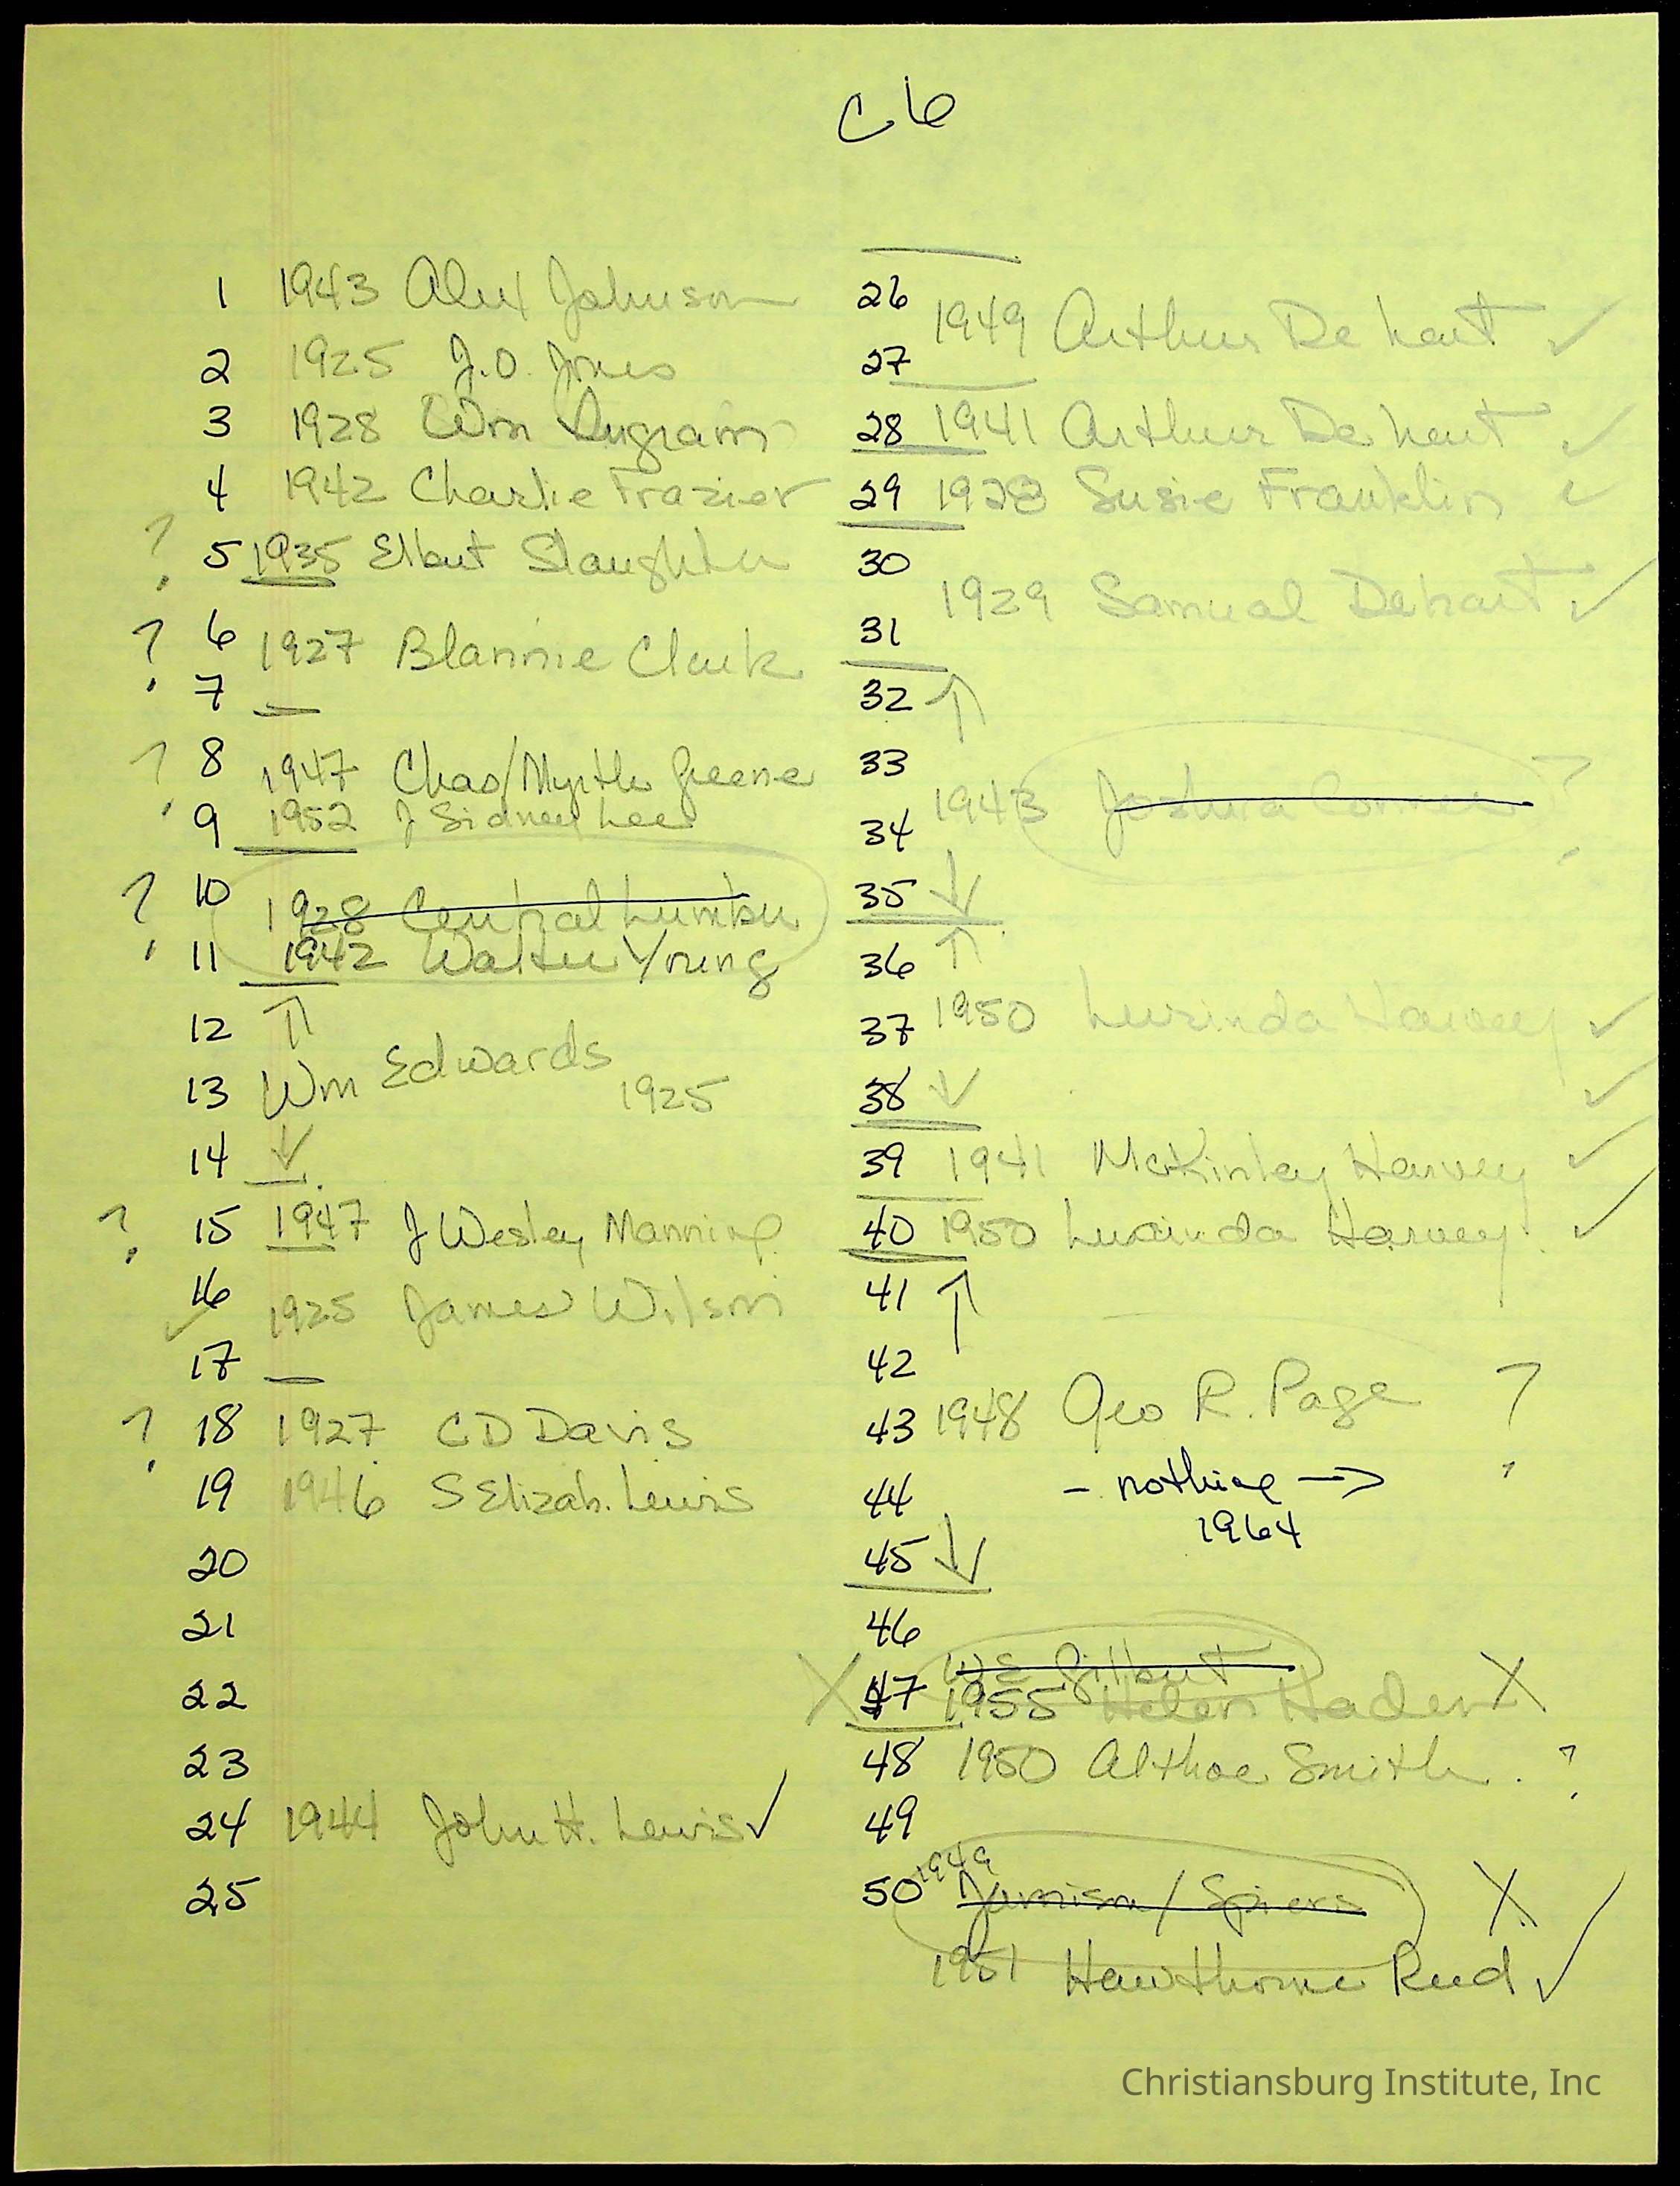 C6
1 1943 Alex Johnson
2 1925 J.O. Jones
3 1928 Wm Ingram
4 1942 Charlie Frazier
? 5 1935 Elbert Slaughter
? 6 1927 Blannie Clark
7 —
? 8 1947 Chas/Myrtle Greene
9 1952 J Sidney Lee
? 10 1928 Central Lumber
11 1942 Walter Young
12 ↑
13 Wm Edwards 1925
14 ↓
? 15 1947 J Wesley Manning
16 1925 James Wilson
✓
17 —
? 18 1927 CD Davis
19 1946 S Elizab. Lewis
20
21
22
23
24 1944 John H. Lewis ✓
25
26
1949 Arthur Dehart ✓
27
28 1941 Arthur Dehart ✓
29 1928 Susie Franklin ✓
30
1929 Samual Dehart ✓
31
32 ↑
33
1943 Joshua ?
34
35 ↓
36 ↑
37 1950 Lurinda Harvey ✓
38 ↓ ✓
39 1941 McKinley Harvey ✓
40 1950 Lucinda Harvey ✓
41 ↑
42
43 1948 Geo R. Page ?
44 - nothing →
1964
45 ↓
46
WE Gilbert
X 47 1955 Helen Haden X
48 1950 Althoe Smith. ?
49
1949
50 Jamison / Spiers X
1951 Hawthorne Reed ✓
Christiansburg Institute, Inc